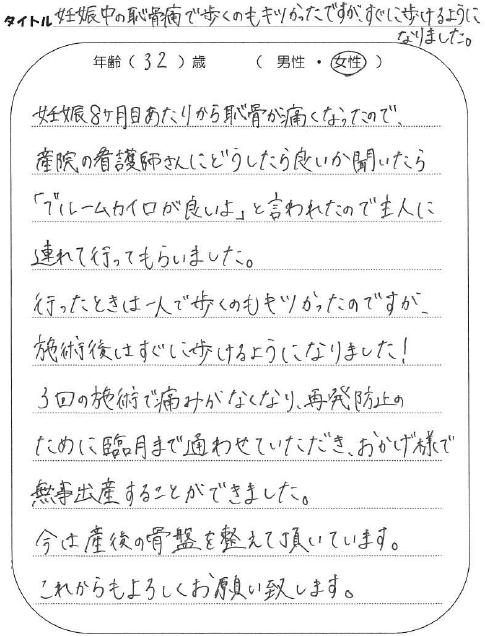 タイトル 妊娠中の恥骨痛で歩くのもキツかったですが、すぐに歩けるように
なりました。
年齢（32）歳　（ 男性 ・ 女性 ）
妊娠8ヶ月目あたりから恥骨が痛くなったので、
産院の看護師さんにどうしたら良いか聞いたら
「でルームカイロが良いよ」と言われたので主人に
連れて行ってもらいました。
行ったときは一人で歩くのもキツかったのですが、
施術後はすぐに歩けるようになりました！
3回の施術で痛みがなくなり、再発防止の
ために臨月まで通わせていただき、おかげ様で
無事出産することができました。
今は産後の骨盤を整えて頂いています。
これからもよろしくお願い致します。